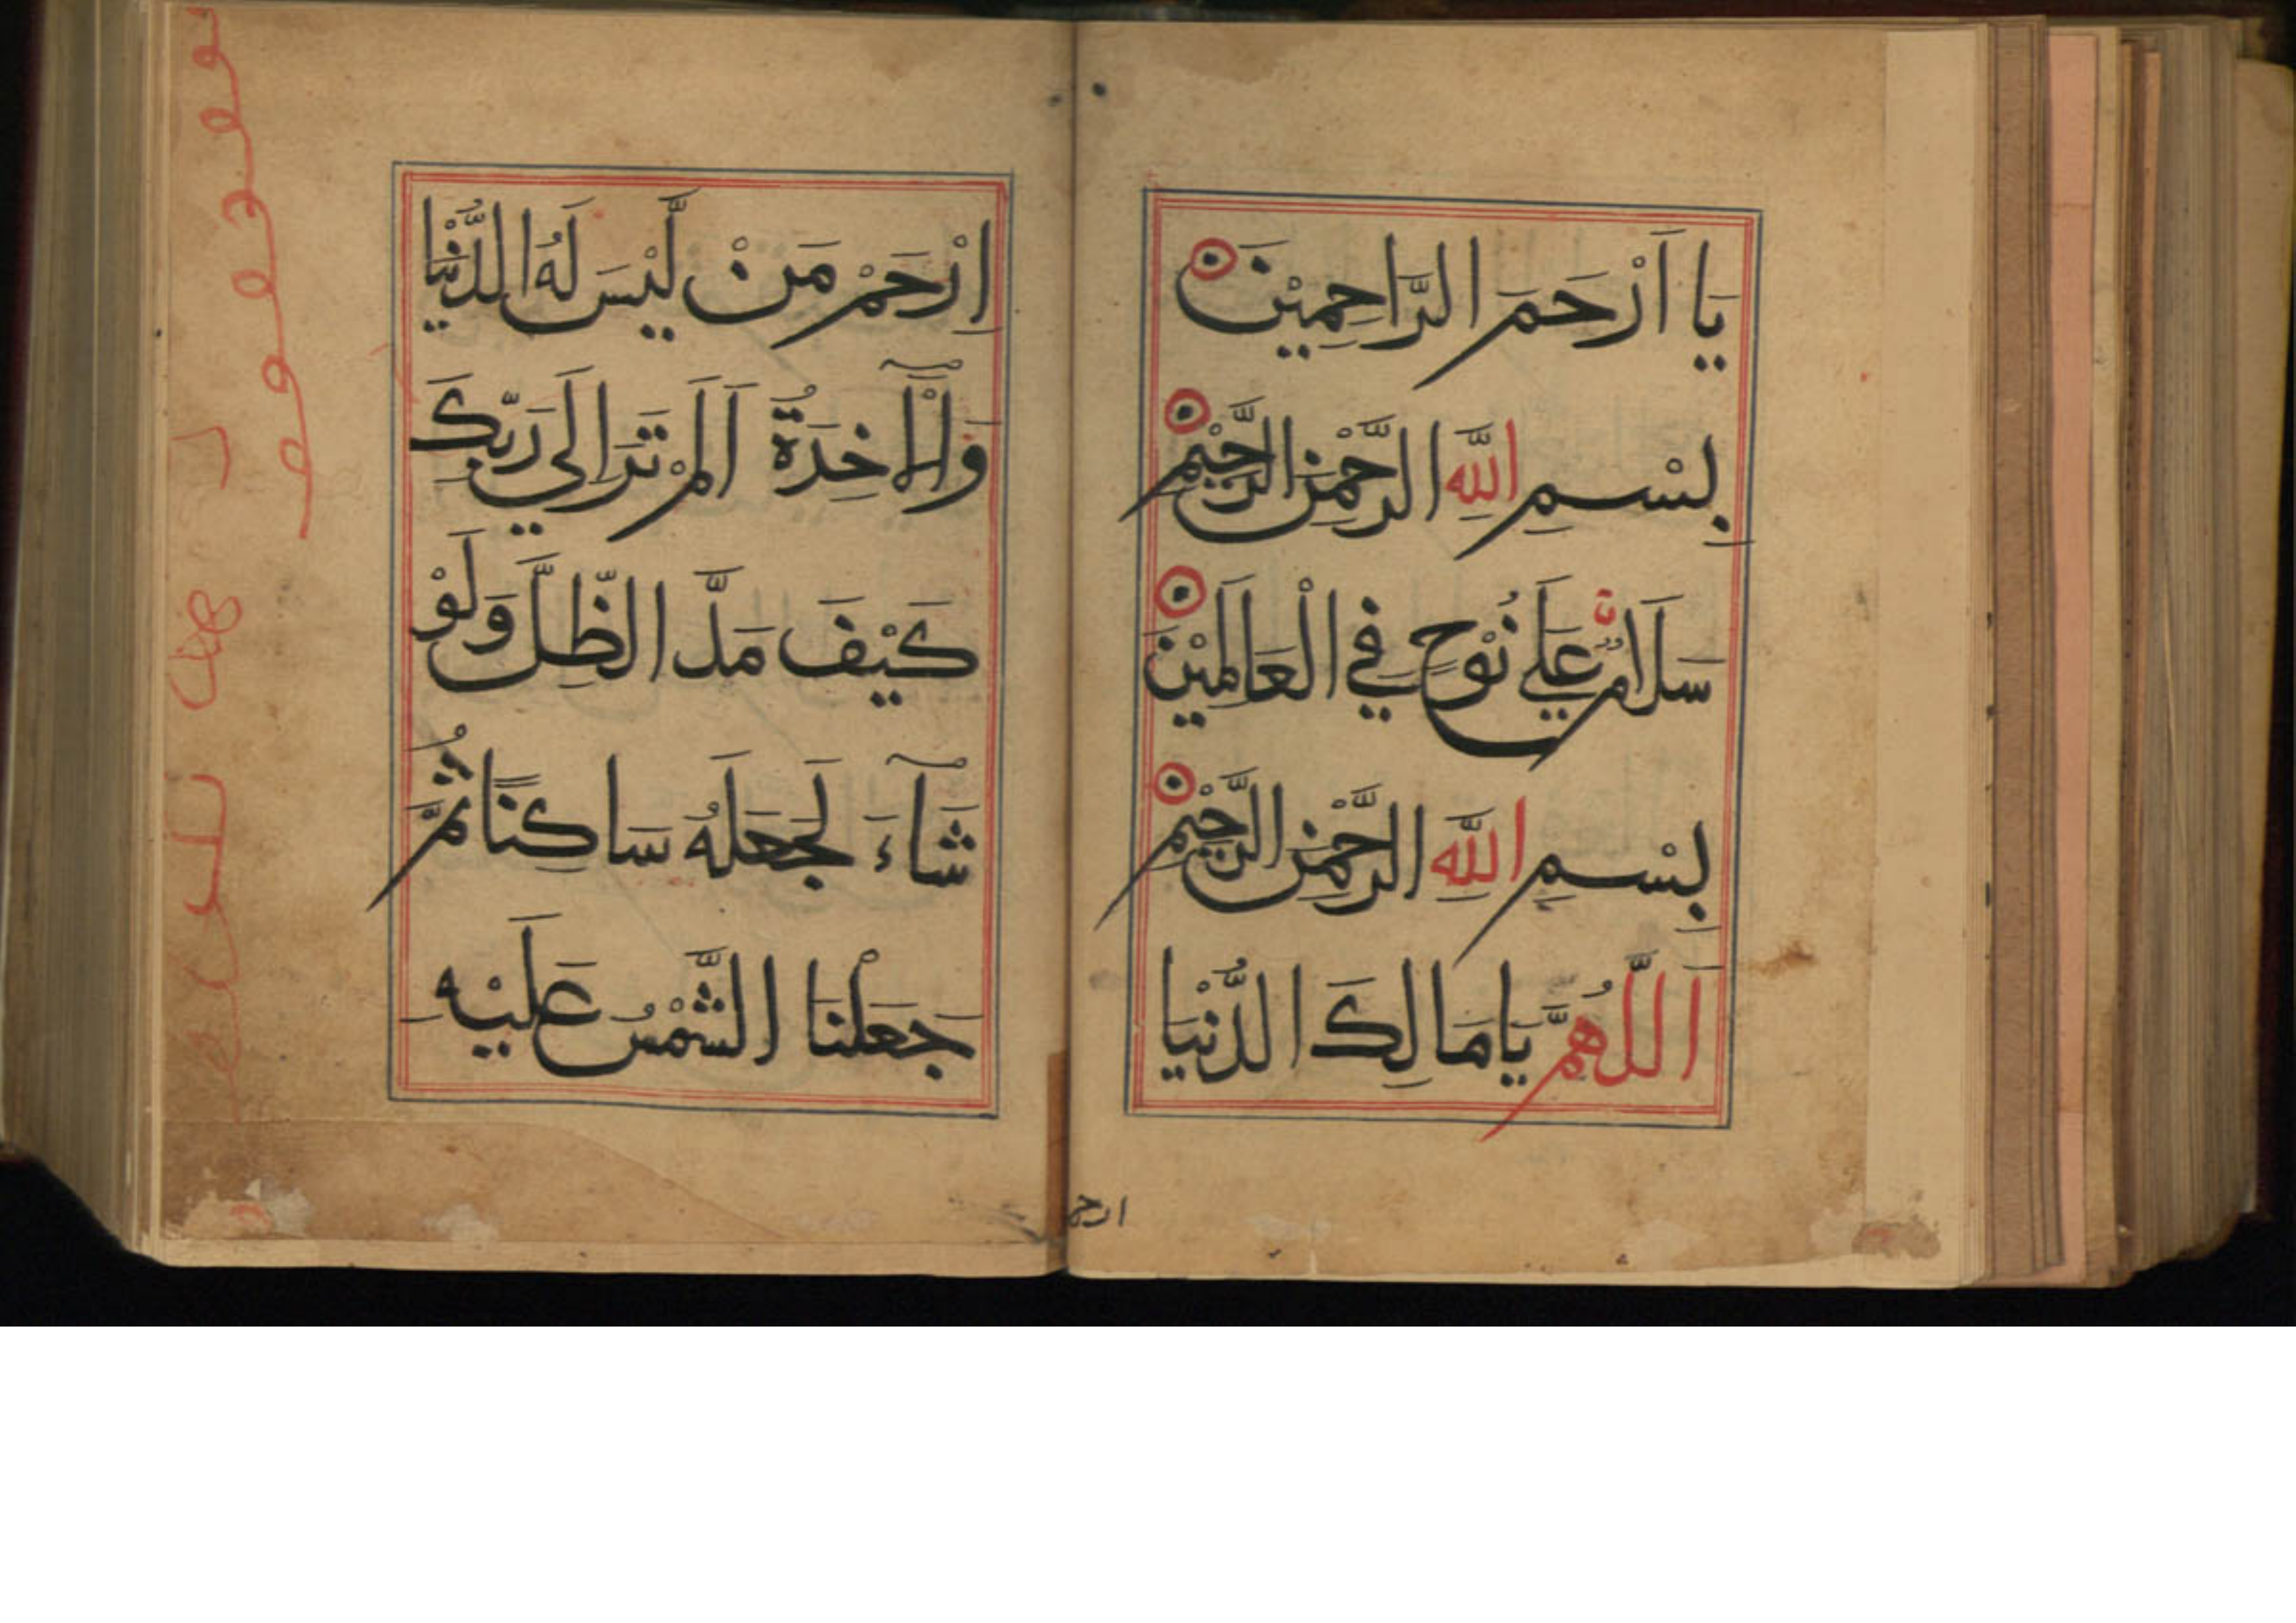 يَا اَرْحَمَ الرَّاحِمِيْنَ
بِسْمِ اللّٰهِ الرَّحْمٰنِ الرَّحِيْمِ
سَلَامٌ عَلٰي نُوْحٍ فِي الْعَالَمِيْنَ
بِسْمِ اللّٰهِ الرَّحْمٰنِ الرَّحِيْمِ
اَللّٰهُمَّ يَا مَالِكَ الدُّنْيَا
ارحم
اِرْحَمْ مَنْ لَّيْسَ لَهُ الدُّنْيَا
وَالْاٰخِرَةُ اَلَمْ تَرَ اِلَي رَبِّكَ
كَيْفَ مَدَّ الظِّلَّ وَلَوْ
شَآءَ لَجَعَلَهُ سَاكِنًا ثُمَّ
جَعَلْنَا الشَّمْسَ عَلَيْهِ